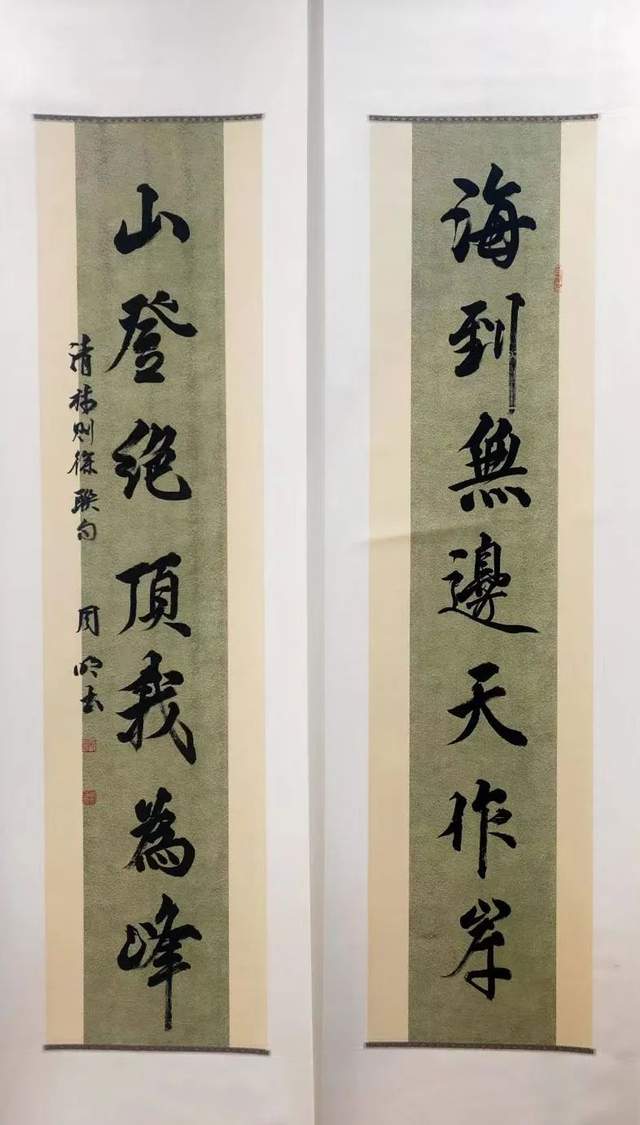 海到無邊天作岸
山登絕頂我為峰
清林則徐聯句
周